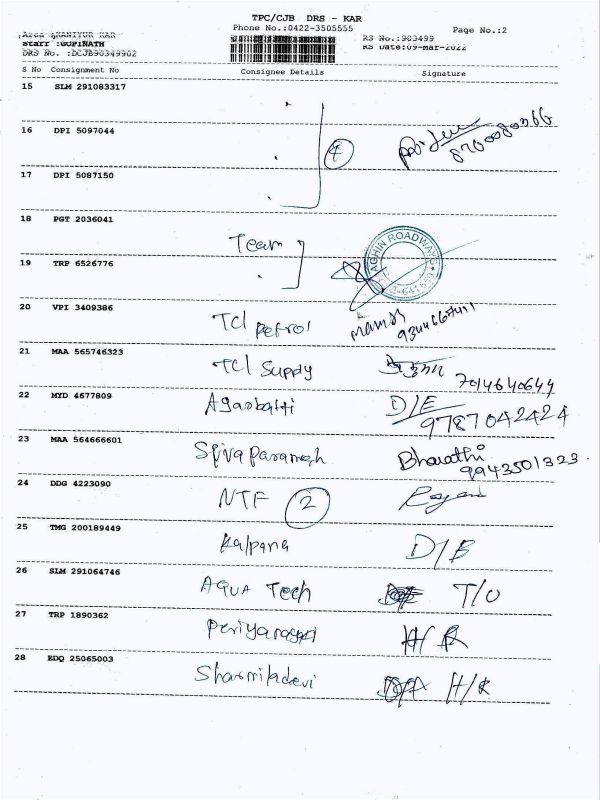 TPC/CJB DRS - KAR
Phone No.:0422-3505555 Page No.:2
Area :KANIYUR KAR RS No.:903499
Staff :GOPINATH RS Date:09-Mar-2022
DRS No. :DCJB90349902
S No Consignment No Consignee Details Signature
15 SLM 291083317
16 DPI 5097044 4
17 DPI 5087150
18 PGT 2036041 Team
19 TRP 6526776
20 VPI 3409386 TCI Petrol
21 MAA 565746323 TCI Supply 7014640649
22 MYD 4677809 Agarbatti D/E 9787042424
23 MAA 564666601 Bharathi 9943501323.
24 DDG 4223090 NTF 2
25 TMG 200189449 Kalpana D/B
26 SLM 291064746 AQUA Tech T/O
27 TRP 1890362 H/R
28 EDQ 25065003 Sharmiladevi H/R